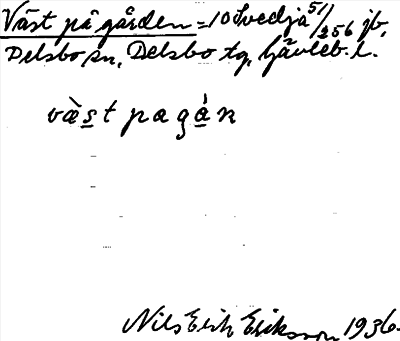 Väst på gården = 10 Svedja 51/256 jb,
Delsbo sn, Delsbo tg, Gävleb. l.
væ̀s̲t pagá̲n
Nils Erik Eriksson 1936.